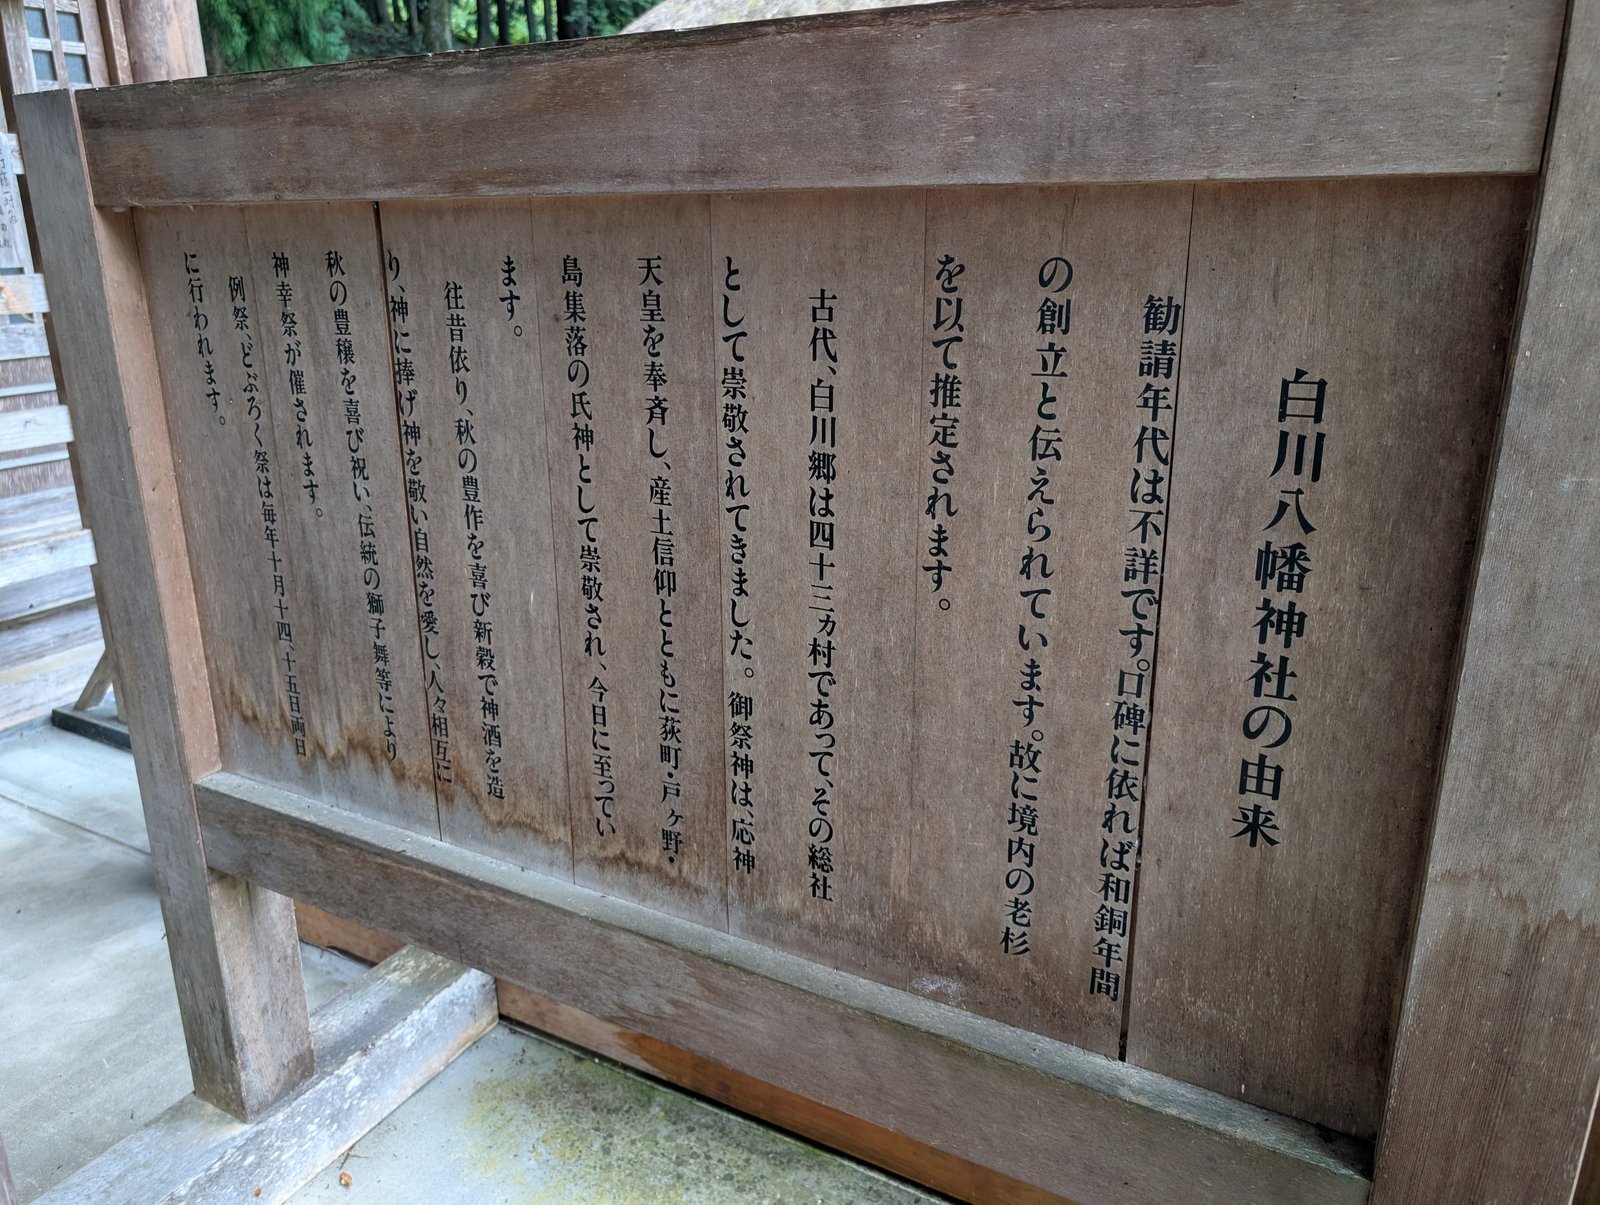 白川八幡神社の由来
勧請年代は不詳です。口碑に依れば和銅年間
の創立と伝えられています。故に境内の老杉
を以て推定されます。
古代、白川郷は四十三ヵ村であって、その総社
として崇敬されてきました。御祭神は、応神
天皇を奉斉し、産土信仰とともに荻町・戸ヶ野・
島集落の氏神として崇敬され、今日に至ってい
ます。
往昔依り、秋の豊作を喜び新穀で神酒を造
り、神に捧げ神を敬い自然を愛し、人々相互に
秋の豊穣を喜び祝い、伝統の獅子舞等により
神幸祭が催されます。
例祭、どぶろく祭は毎年十月十四、十五日両日
に行われます。